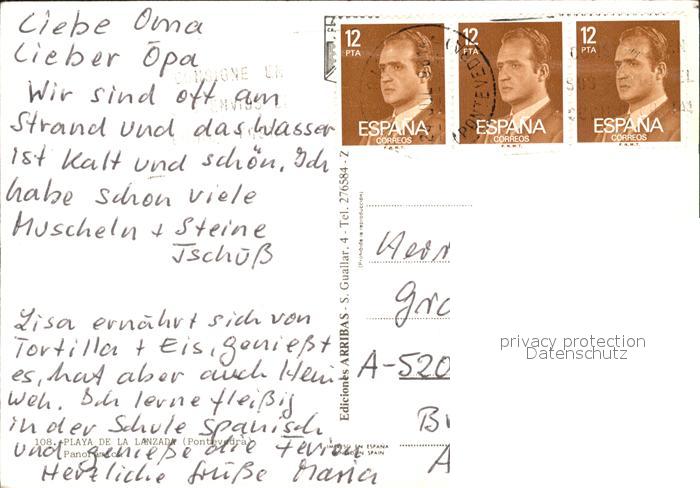 Liebe Oma
Lieber Opa
Wir sind oft am
Strand und das Wasser
ist kalt und schön. Ich
habe schon viele
Muscheln + Steine
Tschüß
Lisa ernährt sich von
Tortilla + Eis, genießt
es, hat aber auch Heim
weh. Ich lerne fleißig
in der Schule Spanisch
und genieße die Ferien
Herzliche Grüße Maria
108. PLAYA DE LA LANZADA (Pontevedra)
Ediciones ARRIBAS - S. Guallar, 4 - Tel. 276584 - Z
(Prohibida la reproducción)
12
PTA
ESPAÑA
CORREOS
F.N.M.T.
12
PTA
ESPAÑA
CORREOS
F.N.M.T.
12
PTA
ESPAÑA
CORREOS
F.N.M.T.
PONTEVEDRA
A-520
privacy protection
Datenschutz